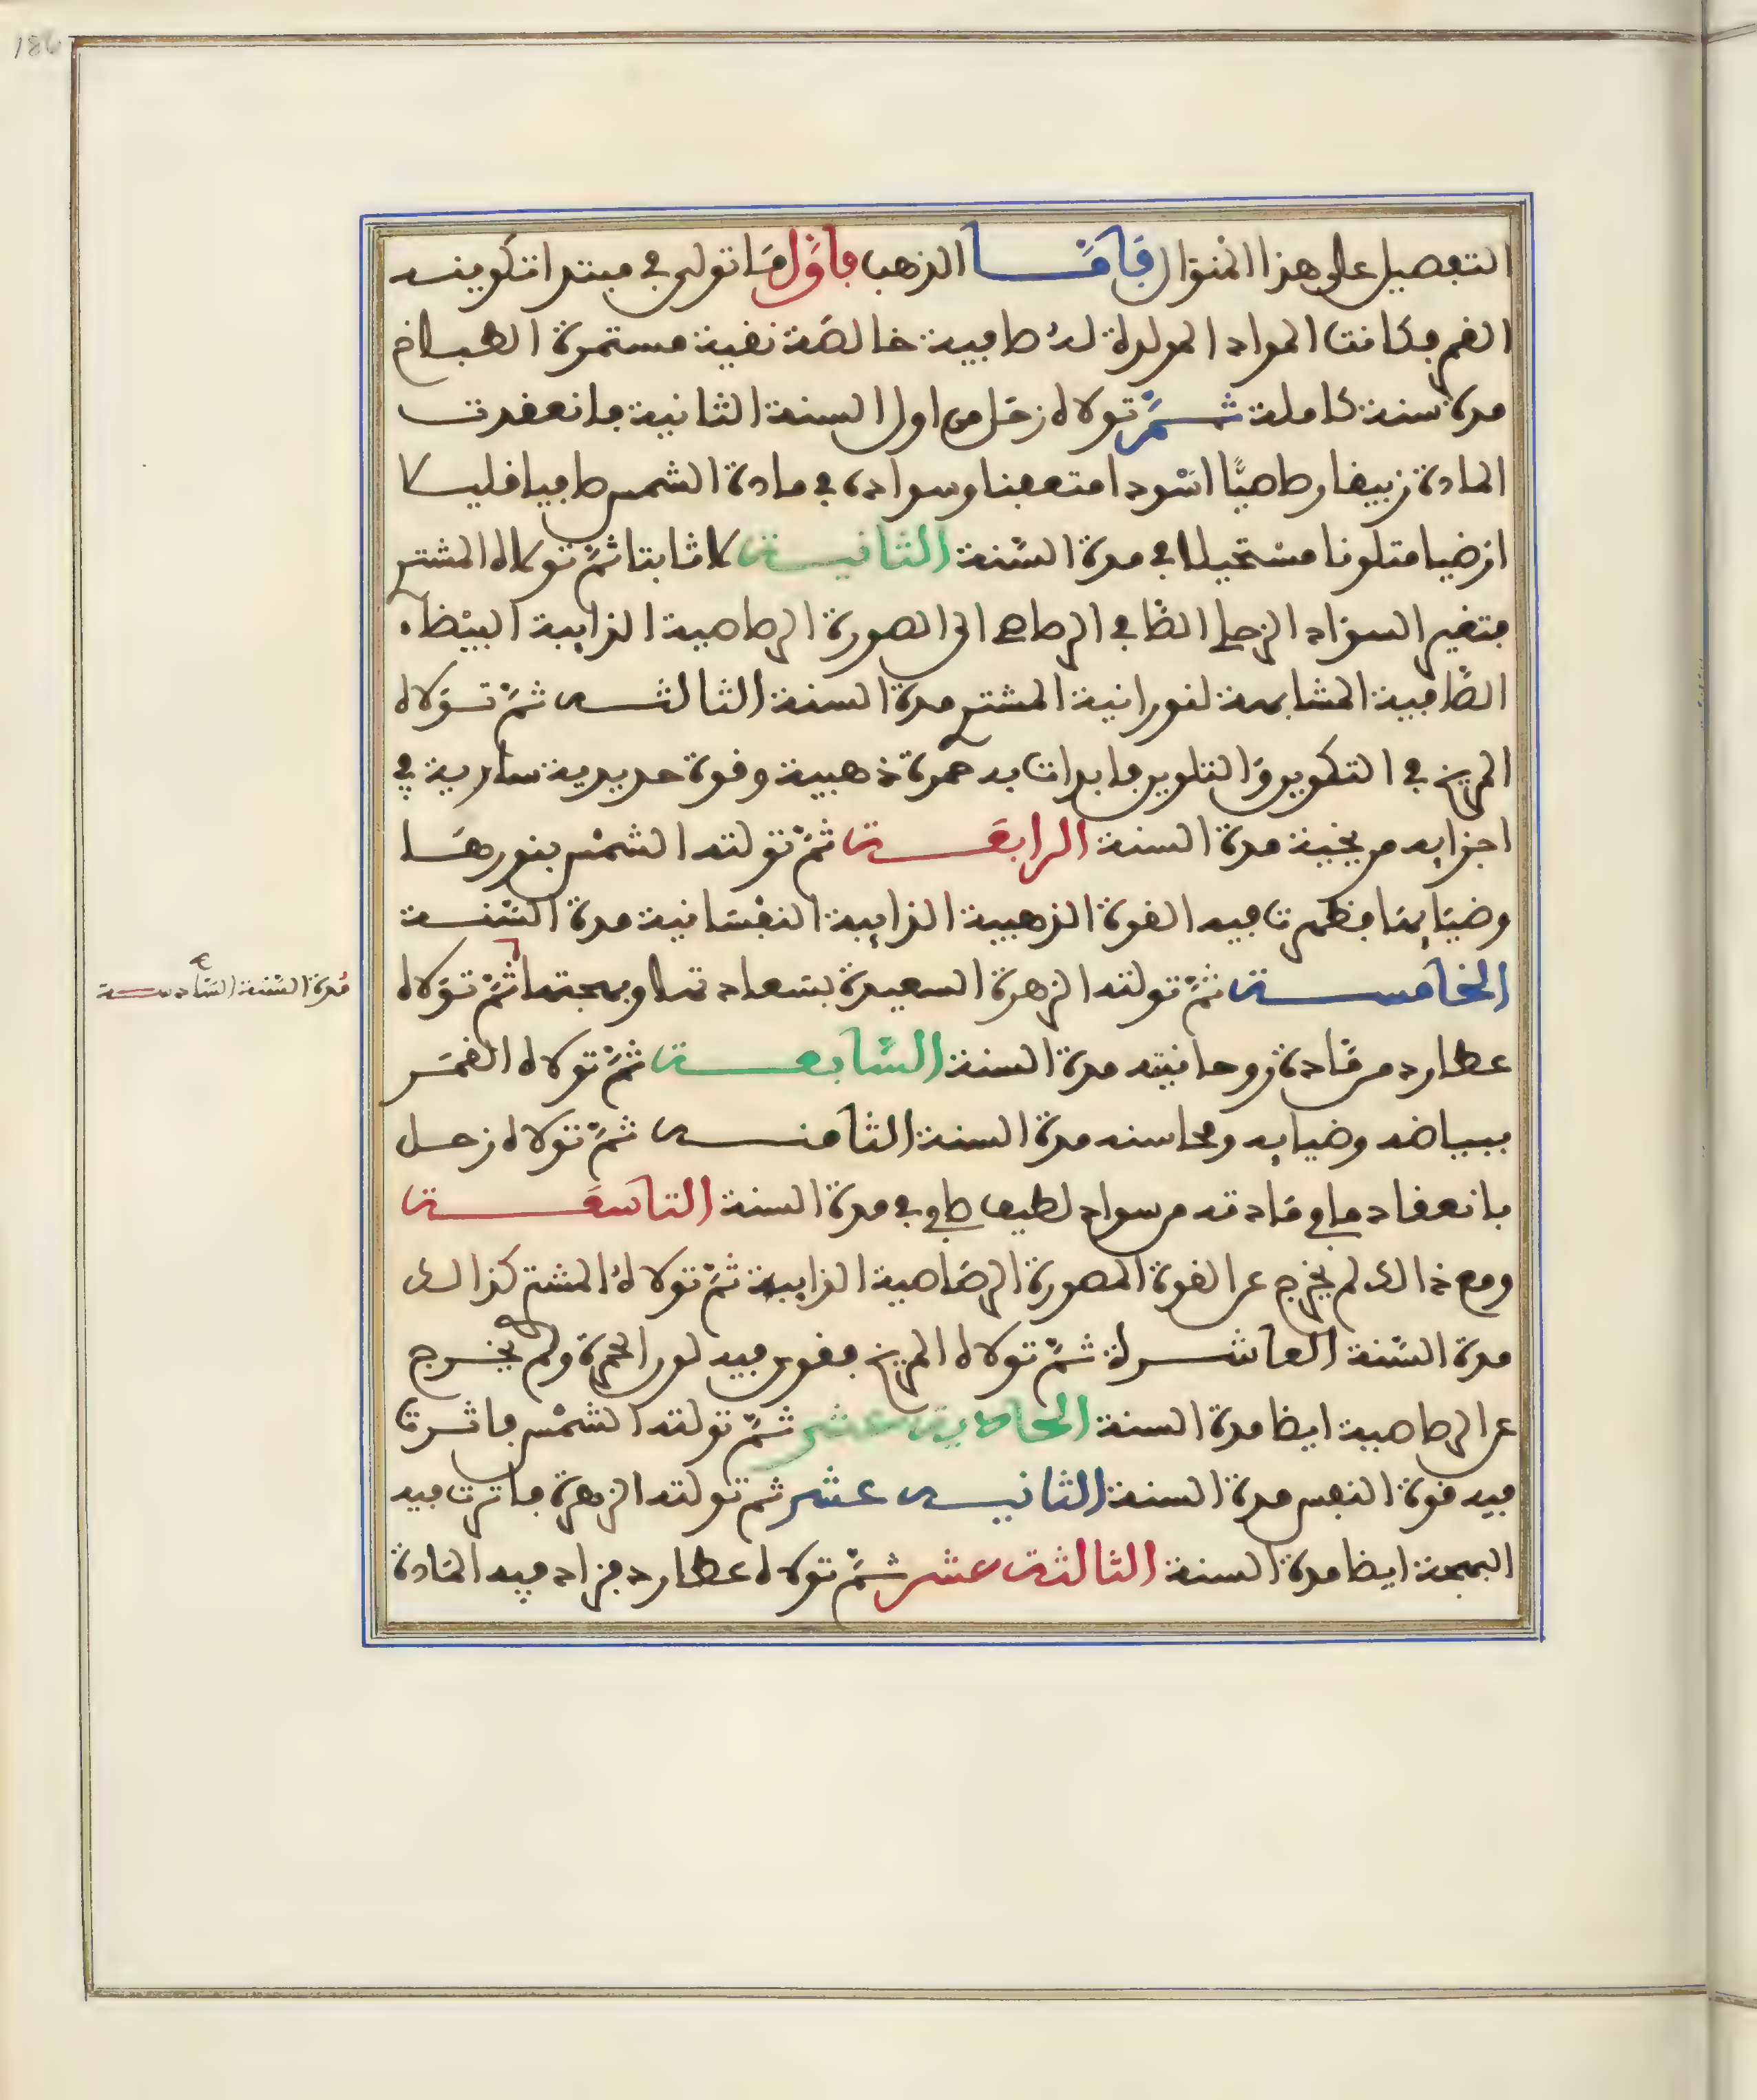 186
التفصيل على هذا المنوال فأمّا الذهب فأوّل مَا تولى في مبتدا تكوينه
القمر فكانت المواد المولدة لهُ صافية خالصَة نقية مستمرة الطباخ
مدة سنة كاملة ثمَّ تولاه زحَل من اول السنة الثانية فانعقدت
المادة زيبقا رصاصيًّا اسْودا متعفنا وسواده في مادة الشمس صافيا قليلا
ارضيا متلونا مسْتحيلا في مدة السّنة الثانية لا ثابتا ثمَّ تولاه المشتري
فتغير السوَاد الزحلي الصَافي الرصاصي الى الصورة الرصاصية الذايبة البيْضاء
الصَّافية المشابهة لنورانية المشتري مدة السنة الثالثة ثمّ تـوَلاه
المريخ في التكوين وَالتلوين فابدات به حمرة ذهبية وقوة حديدية سارية في
اجزايه مريخية مدة السنة الرابعَة ثمَّ تولته الشمْس بنورهَا
وضيَايهَا فظهرت فيه القوة الذهبية الذايبة النفْسَانية مدة السّنة
الخامسة ثمَّ تولته الزهرة السعيدة بسَعادتها وبهجتها ثمَّ توَلاه
مُدة السّنة السّادسة صح
عطارد من مَادة روحانيته مدة السنة السَّابعة ثمَّ تولاه القمَر
ببياضه وضيايه ومحاسنه مدة السنة الثامنة ثمَّ تولاه زحل
بانعقاد ما في مَادته من سواد لطيف صافي في مدة السنة التاسعَة
ومع ذالك لم يخرج عن القوة المصورة الرصَاصية الذايبة ثمَّ تولاهُ المشتري كذالك
مدة السّنة العاشرة ثمَّ تولاه المريخ فقوى فيه لون الحمرة ولم يخرج
عن الرصاصية ايضا مدة السنة الحادية عشر ثمَّ تولته الشمْس فاثرت
فيه قوة النفس مدة السنة الثانية عشر ثم تولته الزهرة فاثرت فيه
البهجة ايضا مدة السنة الثالثة عشر ثمَّ تولاه عطارد فزاد فيه المَادة